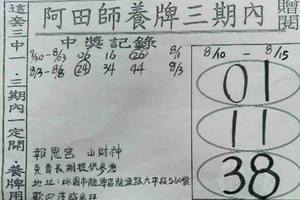 阿田師養牌三期內
贈閱
這套三中一·三期內一定開·養牌用
中獎記錄
8/10 - 8/15
7/30 - 8/3 06 16 26 8/1
8/3 - 8/8 24 34 44 8/3
01
11
38
郭恩宮 山財神
免費長期提供參考
地址:桃園市龍潭區龍源路大平段560號